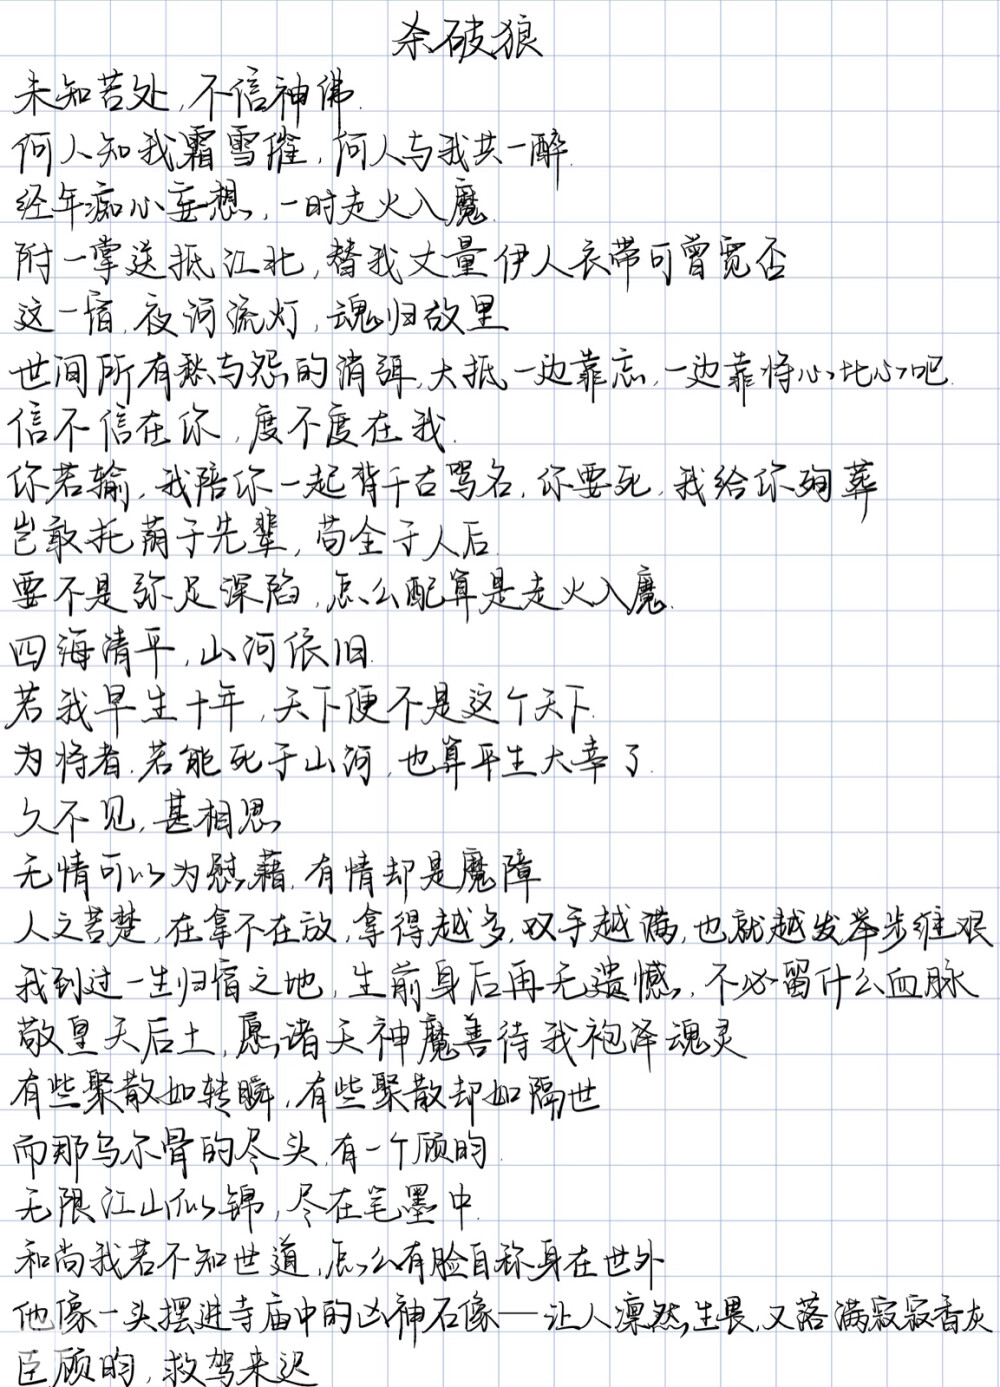 杀破狼
未知苦处,不信神佛.
何人知我霜雪摧,何人与我共一醉.
经年痴心妄想,一时走火入魔.
附一掌送抵江北,替我丈量伊人衣带可曾宽否
这一宿,夜河流灯,魂归故里
世间所有愁与怨的消弭,大抵一边靠忘,一边靠将心比心吧.
信不信在你,度不度在我.
你若输,我陪你一起背千古骂名,你要死,我给你殉葬
岂敢托荫于先辈,苟全于人后.
要不是弥足深陷,怎么配算是走火入魔.
四海清平,山河依旧.
若我早生十年,天下便不是这个天下.
为将者,若能死于山河,也算平生大幸了.
久不见,甚相思
无情可以为慰藉,有情却是魔障
人之苦楚,在拿不在放,拿得越多,双手越满,也就越发举步维艰
我到过一生归宿之地,生前身后再无遗憾,不必留什么血脉
敬皇天后土,愿诸天神魔善待我袍泽魂灵
有些聚散如转瞬,有些聚散却如隔世
而那乌尔骨的尽头,有一个顾昀.
无限江山似锦,尽在笔墨中.
和尚我若不知世道,怎么有脸自称身在世外
他像一头摆进寺庙中的凶神石像——让人凛然生畏,又落满寂寂香灰
臣顾昀,救驾来迟